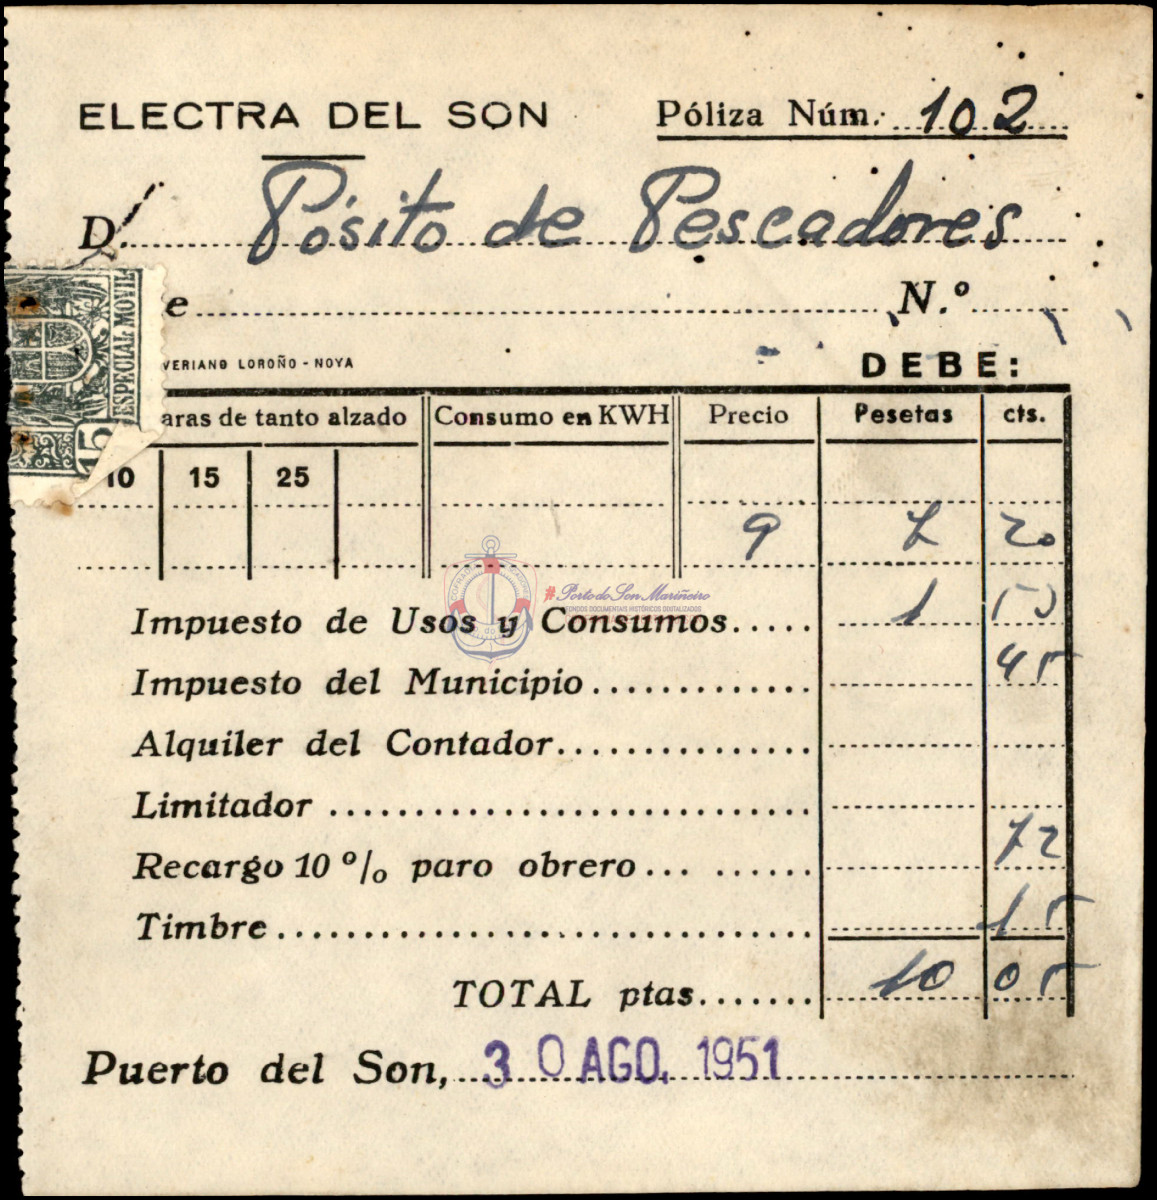 ELECTRA DEL SON
Póliza Núm. 102
D. Pósito de Pescadores
e N.º
ESPECIAL MOVIL
15
VERIANO LOROÑO - NOYA
DEBE:
aras de tanto alzado Consumo en KWH Precio Pesetas cts.
10 15 25
9 7 20
#Porto do Son Mariñeiro
FONDOS DOCUMENTAIS HISTÓRICOS DIGITALIZADOS
Impuesto de Usos y Consumos 1 53
Impuesto del Municipio 45
Alquiler del Contador
Limitador
Recargo 10 % paro obrero 72
Timbre 15
TOTAL ptas. 10 05
Puerto del Son, 30 AGO. 1951